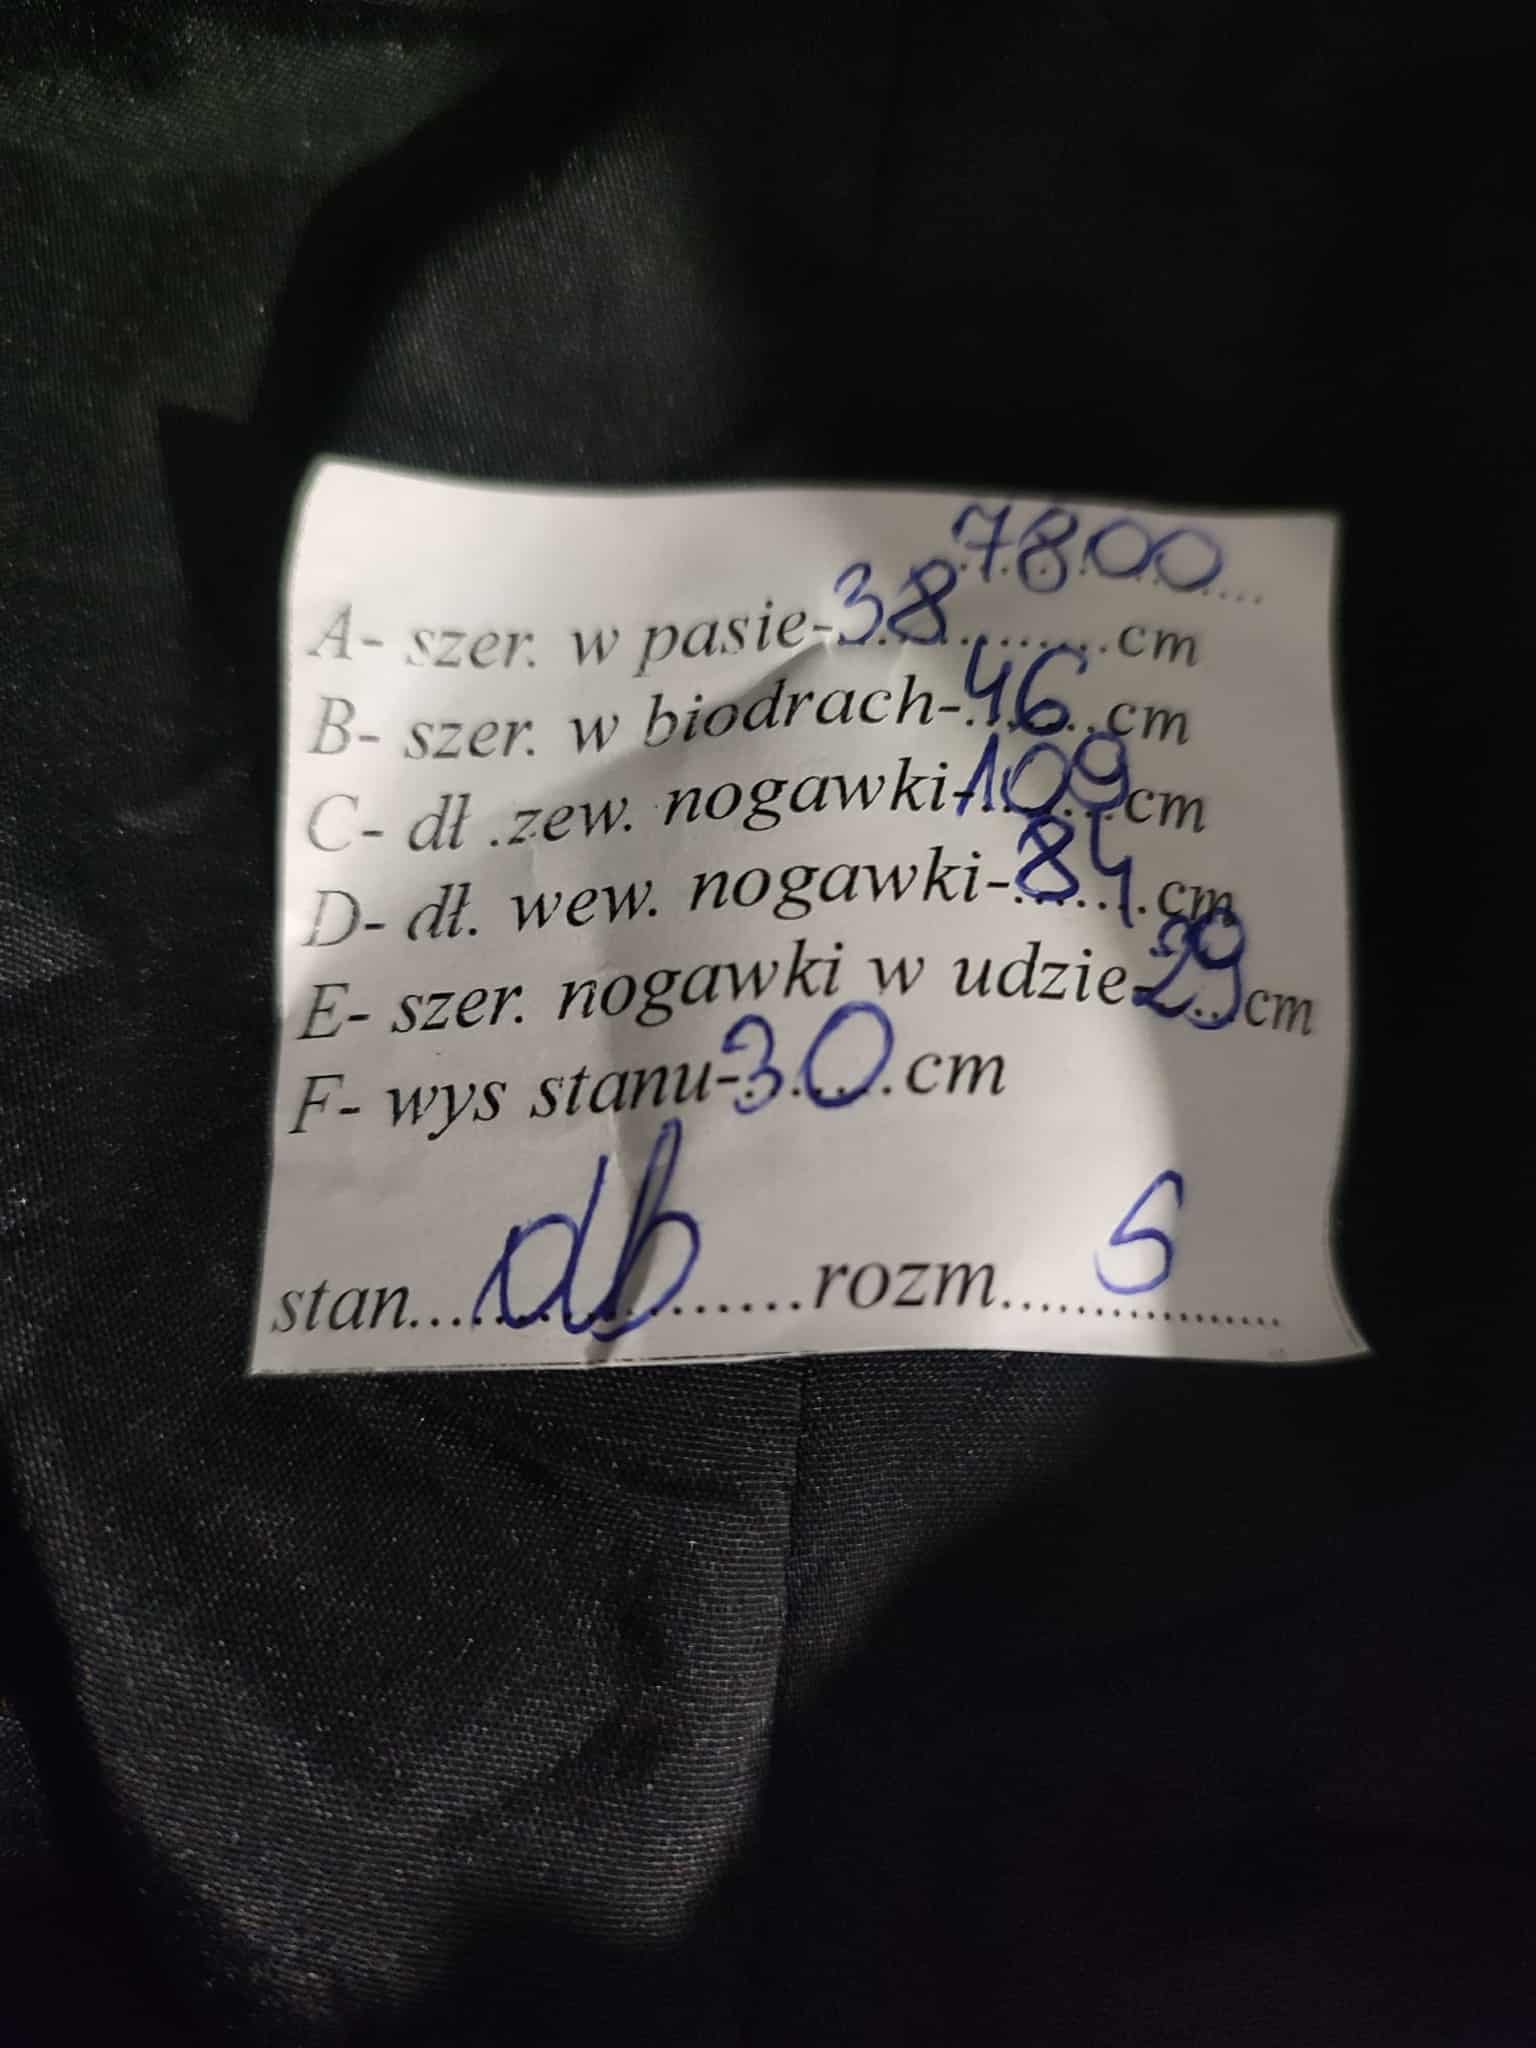 7800
A- szer. w pasie-38............cm
B- szer. w biodrach-46......cm
C- dł .zew. nogawki-109......cm
D- dł. wew. nogawki-84.......cm
E- szer. nogawki w udzie-29...cm
F- wys stanu-30.......cm
stan...db.................rozm...S.............